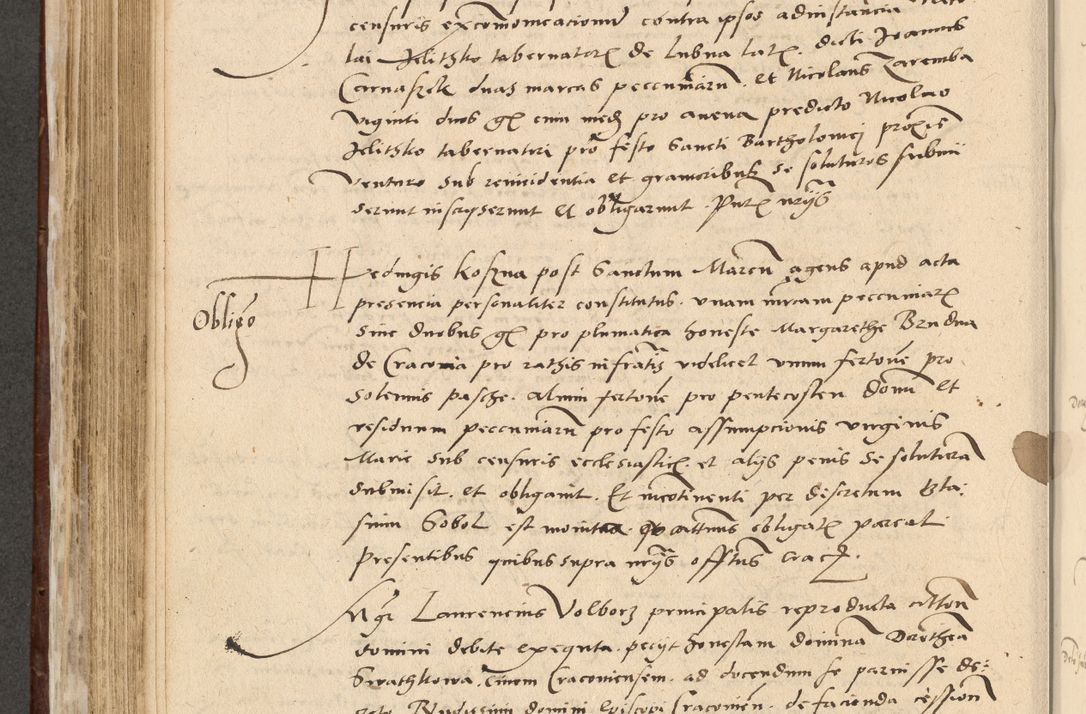 censuris excommunicacionum contra ipsos ad instancia
lai Jelitzko tabernatoris de Lubna latę. dicti Joannes
Czarnaszek duas marcas pecuniarū. et Nicolaus Zaremba
viginti duos gr̄ cum medͦ pro avena predicto Nicolao
Jelitzko tabernatori pro festo Sancti Bartholomei proxie
venturo sub reincidentia et gravioribus se soluturos submi
serunt inscripserunt et obligarunt. Pntē nrijs
Hedvigis Koszna post Sanctum Marcū agens apud acta
presencia personaliter constitutus. unam mrcam pecuniarē
Obligo
sine duobus gr̄ pro plumatica honeste Margarethe Brudna
de Cracovia pro rathis infratis videlicet unum fertonē pro
solennis pasche. alium fertonē pro pentecosten domi et
residuum pecuniarū pro festo assumpcionis virginis
Marie sub censuris ecclesiastic̄. et alijs penis se soluturā
submisit. et obligavit. Et incotinenti per discretum Bla:
sium Sobol est monita attinus obligatē parcat
Presentibus quibus supra nrijs offtus crac̄.
Mgr Laurencius Volborz principalis reproducta citton
domini debite exequta. peciit honestam dominā Dorotheā
Swathkowa. civem Cracoviensem. ad docendum se paruisse de:
Rdissimi domini Episcopi Cracovien. de facienda cession